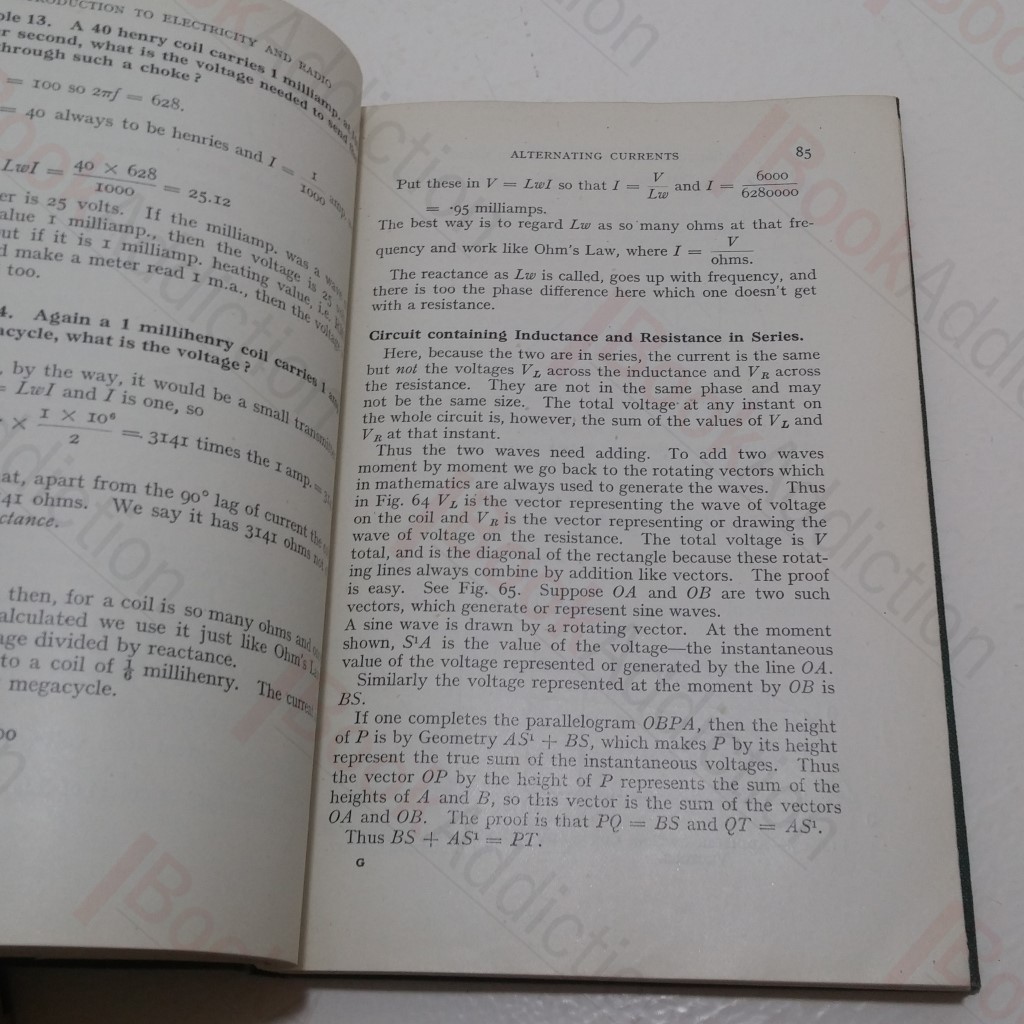 TO ELECTRICITY AND RADIO
13. A 40 henry coil carries 1 milliamp.
second, what is the voltage needed to send
through such a choke?
= 100 so 2πf = 628.
= 40 always to be henries and I = 1 / 1000
LwI = 40 × 628 / 1000 = 25.12
is 25 volts. If the milliamp. was a
1 milliamp., then the voltage is 25
if it is 1 milliamp. heating value, i.e.
make a meter read 1 m.a., then the
too.
Again a 1 millihenry coil carries 1
what is the voltage?
by the way, it would be a small
= LwI and I is one, so
× 1 × 10⁶ / 2 = 3141 times the 1 amp. =
at, apart from the 90° lag of current the
ohms. We say it has 3141 ohms
then, for a coil is so many ohms and
we use it just like Ohm's
divided by reactance.
to a coil of 1/6 millihenry. The
megacycle.
ALTERNATING CURRENTS 85
Put these in V = LwI so that I = V / Lw and I = 6000 / 6280000
= ·95 milliamps.
The best way is to regard Lw as so many ohms at that fre-
quency and work like Ohm's Law, where I = V / ohms.
The reactance as Lw is called, goes up with frequency, and
there is too the phase difference here which one doesn't get
with a resistance.
Circuit containing Inductance and Resistance in Series.
Here, because the two are in series, the current is the same
but not the voltages V_L across the inductance and V_R across
the resistance. They are not in the same phase and may
not be the same size. The total voltage at any instant on
the whole circuit is, however, the sum of the values of V_L and
V_R at that instant.
Thus the two waves need adding. To add two waves
moment by moment we go back to the rotating vectors which
in mathematics are always used to generate the waves. Thus
in Fig. 64 V_L is the vector representing the wave of voltage
on the coil and V_R is the vector representing or drawing the
wave of voltage on the resistance. The total voltage is V
total, and is the diagonal of the rectangle because these rotat-
ing lines always combine by addition like vectors. The proof
is easy. See Fig. 65. Suppose OA and OB are two such
vectors, which generate or represent sine waves.
A sine wave is drawn by a rotating vector. At the moment
shown, S¹A is the value of the voltage—the instantaneous
value of the voltage represented or generated by the line OA.
Similarly the voltage represented at the moment by OB is
BS.
If one completes the parallelogram OBPA, then the height
of P is by Geometry AS¹ + BS, which makes P by its height
represent the true sum of the instantaneous voltages. Thus
the vector OP by the height of P represents the sum of the
heights of A and B, so this vector is the sum of the vectors
OA and OB. The proof is that PQ = BS and QT = AS¹.
Thus BS + AS¹ = PT.
G
BookAddiction